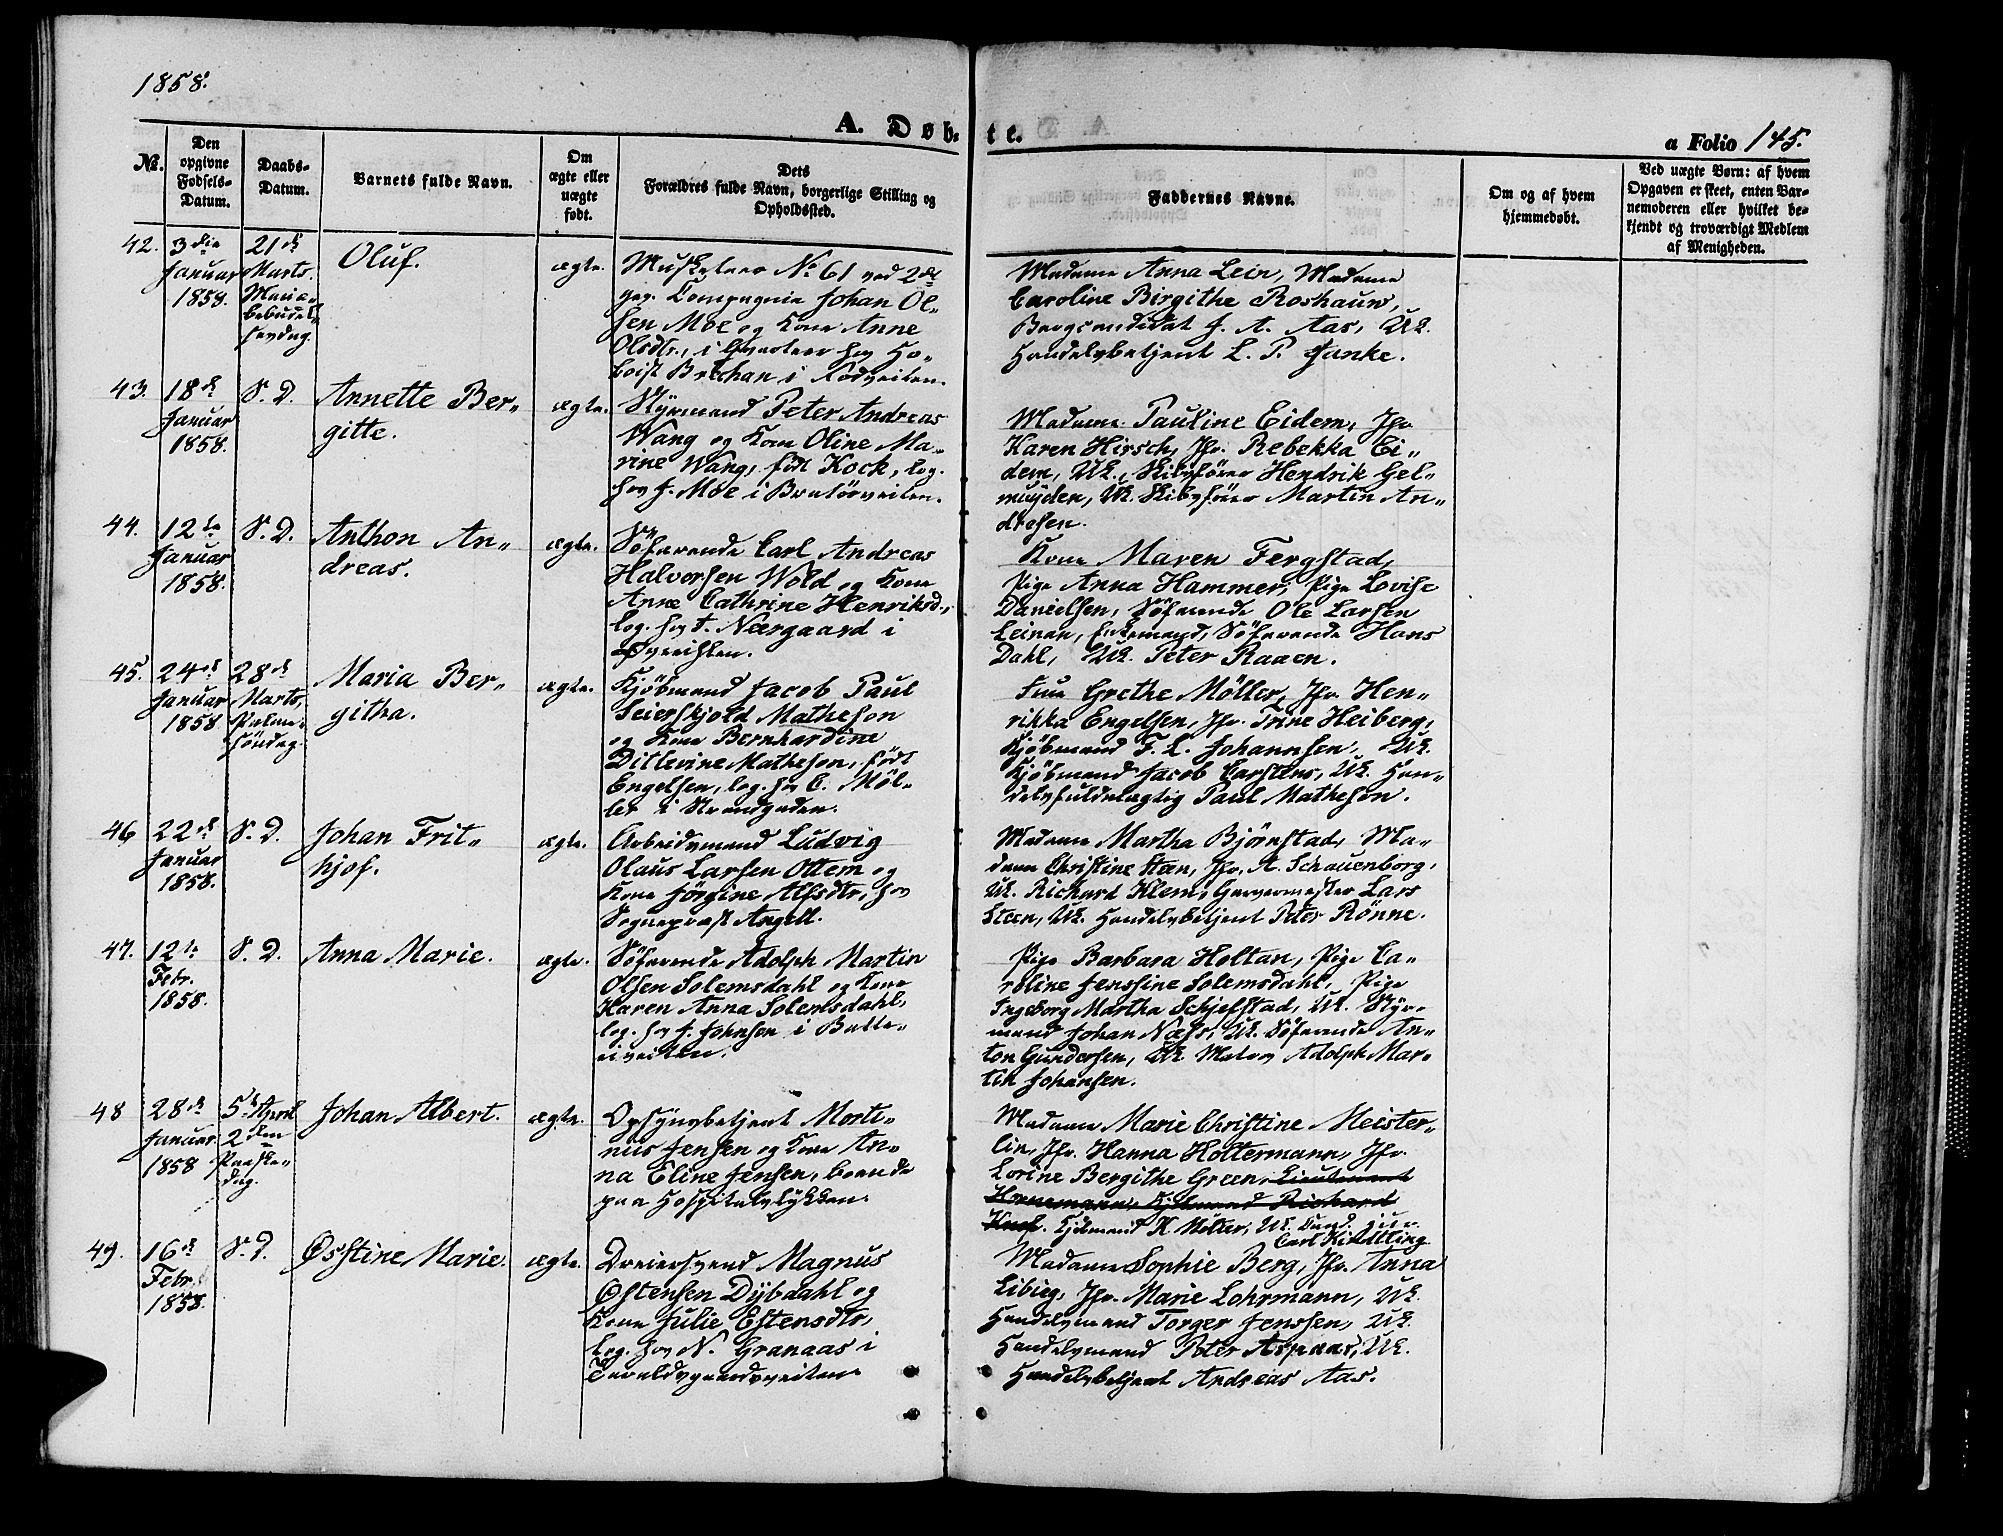 1858.
A. Døb-
te.
a Folio 145.
No.
Den
opgivne
Fødsels-
Datum.
Daabs-
Datum.
Barnets fulde Navn.
Om
ægte eller
uægte
født.
Dets
Forældres fulde Navn, borgerlige Stilling og
Opholdssted.
Faddernes Navne.
Om og af hvem
hjemmedøbt.
Ved uægte Børn: af hvem
Opgaven er skeet, enten Bar-
nemoderen eller hvilket be-
kjendt og troværdigt Medlem
af Menigheden.
42.
3die
Januar
1858.
21de
Marts.
Mariæ
bebudel-
sesdag.
Oluf.
ægte.
Musketeer No 61 ved 2det
ger. Compagnie Johan Ol-
sen Moe og Kone Anne
Olsdtr., i Qvarteer hos Ho-
boist Brechan i Kodveiten.
Madame Anna Lein, Madame
Caroline Birgithe Roshauw,
Bergcandidat J. A. Aas, Uk.
Handelsbetjent L. P. Janke.
43.
18de
Januar
1858.
S. D.
Annette Ber-
gitte.
ægte.
Styrmand Peter Andreas
Wang og Kone Oline Ma-
rine Wang, født Kock, log.
hos J. Moe i Bratörveiten.
Madame Pauline Eidem, Jfr.
Karen Hirsch, Jfr. Rebekka Ei-
dem, Uk. Skibsfører Hendrik Gel-
muyden, Uk. Skibsfører Martin An-
dresen.
44.
12te
Januar
1858.
S. D.
Anthon An-
dreas.
ægte.
Söfarende Carl Andreas
Halvorsen Wold og Kone
Anne Cathrine Henriksd.,
log. hos T. Neergaard i
Kone Maren Fergstad,
Pige Anna Hammer, Pige Lovise
Danielsen, Söfarende Ole Larsen
Leinan, Enkemand, Söfarende Hans
Dahl, Uk. Peter Raaen.
45.
24de
Januar
1858
28de
Marts,
Palme-
söndag.
Maria Ber-
githa.
ægte.
Kjöbmand Jacob Paul
Seierskjold Matheson
og Kone Bernhardine
Ditlevine Matheson, født
Engelsen, log. hos C. Möl-
ler i Strandgaden.
Frue Grethe Möller, Jfr. Hen-
rikka Engelsen, Jfr. Trine Heiberg,
Kjöbmand F. L. Johannsen, Uk.
Kjöbmand Jacob Carstens, Uk. Han-
delsfuldmægtig Paul Matheson.
46
22de
Januar
1858.
S. D.
Johan Frit-
hjof.
ægte.
Arbeidsmand Ludvig
Olaus Larsen Ottem og
Kone Jörgine Alfsdtr., hos
Sognepræst Angell.
Madame Martha Bjørnstad, Ma-
dame Christine Steen, Jfr. A. Schauenborg,
Uk. Richard Klem, Garvermester Lars
Steen, Uk. Handelsbetjent Peter Rønne.
47.
12te
Febr.
1858.
S. D.
Anna Marie.
ægte.
Söfarende Adolph Martin
Olsen Solemsdahl og Kone
Karen Anna Solemsdahl,
log. hos J. Johnsen i Batte-
riveiten.
Pige Barbara Holtan, Pige Ca-
roline Jenssine Solemsdahl, Pige
Ingeborg Martha Schjelstad, Uk. Styr-
mand Johan Næss, Uk. Söfarende An-
ton Gundersen, Uk. Matros Adolph Mar-
tin Johansen.
48
28de
Januar
1858
5te April
2den
Paaske-
dag.
Johan Albert.
ægte.
Opsynsbetjent Morti-
nus Jensen og Kone An-
na Eline Jensen, boende
paa Hospitalslykken.
Madame Marie Christine Meister-
lin, Jfr. Hanna Holtermann, Jfr.
Lorine Bergithe Green, Lieutenant
Hornemann, Kjöbmand Richard
Knof. Kjöbmand K. Möller, Uk. Cand. jur.
Carl Ki
49.
16de
Febr.
1858.
S. D.
Østine Marie.
ægte.
Dreiersvend Magnus
Østensen Dybdahl og
Kone Julie Estensdtr,
log. hos N. Granaas i
Taraldsgaardsveiten.
Madame Sophie Berg, Jfr. Anna
Libieg, Jfr. Marie Lohrmann, Uk.
Handelsmand Torger Jenssen, Uk.
Handelsmand Peter Aspaas, Uk.
Handelsbetjent Andreas Aas.